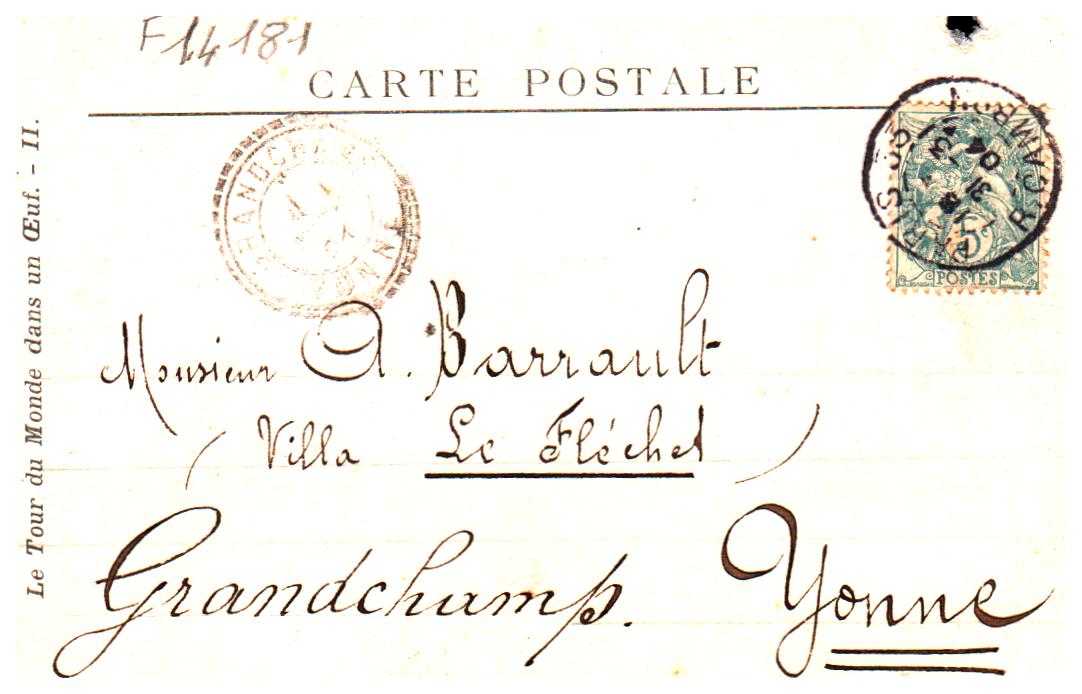 F 14181
CARTE POSTALE
Le Tour du Monde dans un Œuf. - II.
GRANDCHAMP
YONNE
PARIS
31
04
5
POSTES
Monsieur A. Barrault
(Villa Le Fléchet)
Grandchamp. Yonne